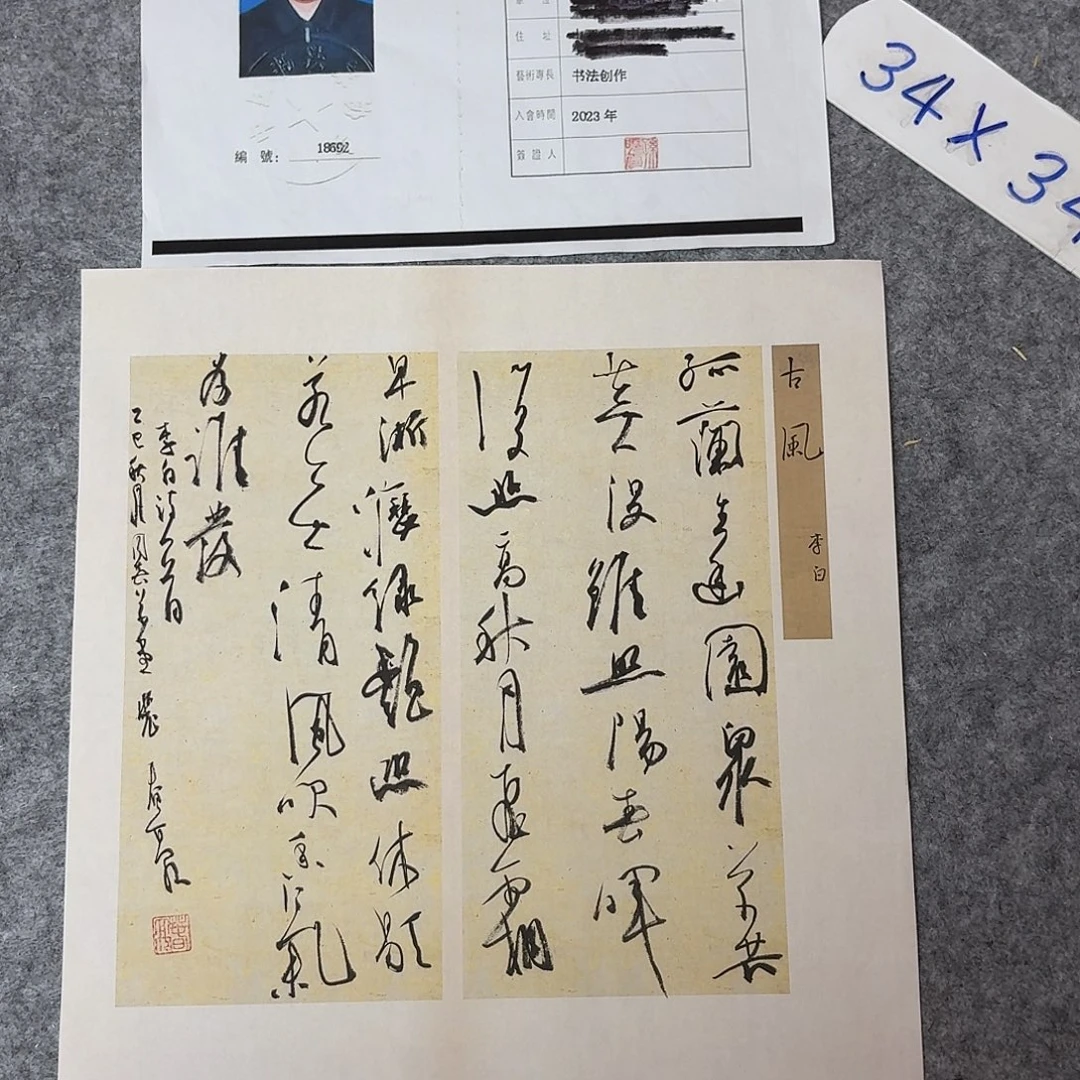 住 址
藝術專長 书法创作
入會時間 2023 年
簽證人
編 號: 18692
34 X 34
古風
李白
孤蘭生幽園衆草共
蕪没雖照陽春暉
復悲高秋月飛霜
早淅瀝緑艷恐休歇
若无清風吹香氣
为誰發
李白诗一首
乙巳秋月